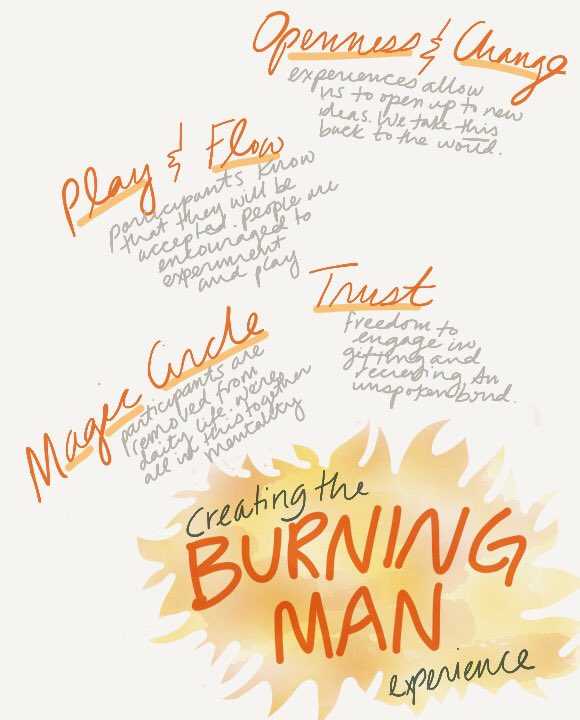 Openness & Change
experiences allow
us to open up to new
ideas. We take this
back to the world.
Play & Flow
participants know
that they will be
accepted. People are
encouraged to
experiment
and play
Trust
freedom to
engage in
gifting and
receiving. An
unspoken bond.
Magic Circle
participants are
removed from
daily life. were
all in this together
mentality
creating the
BURNING
MAN
experience